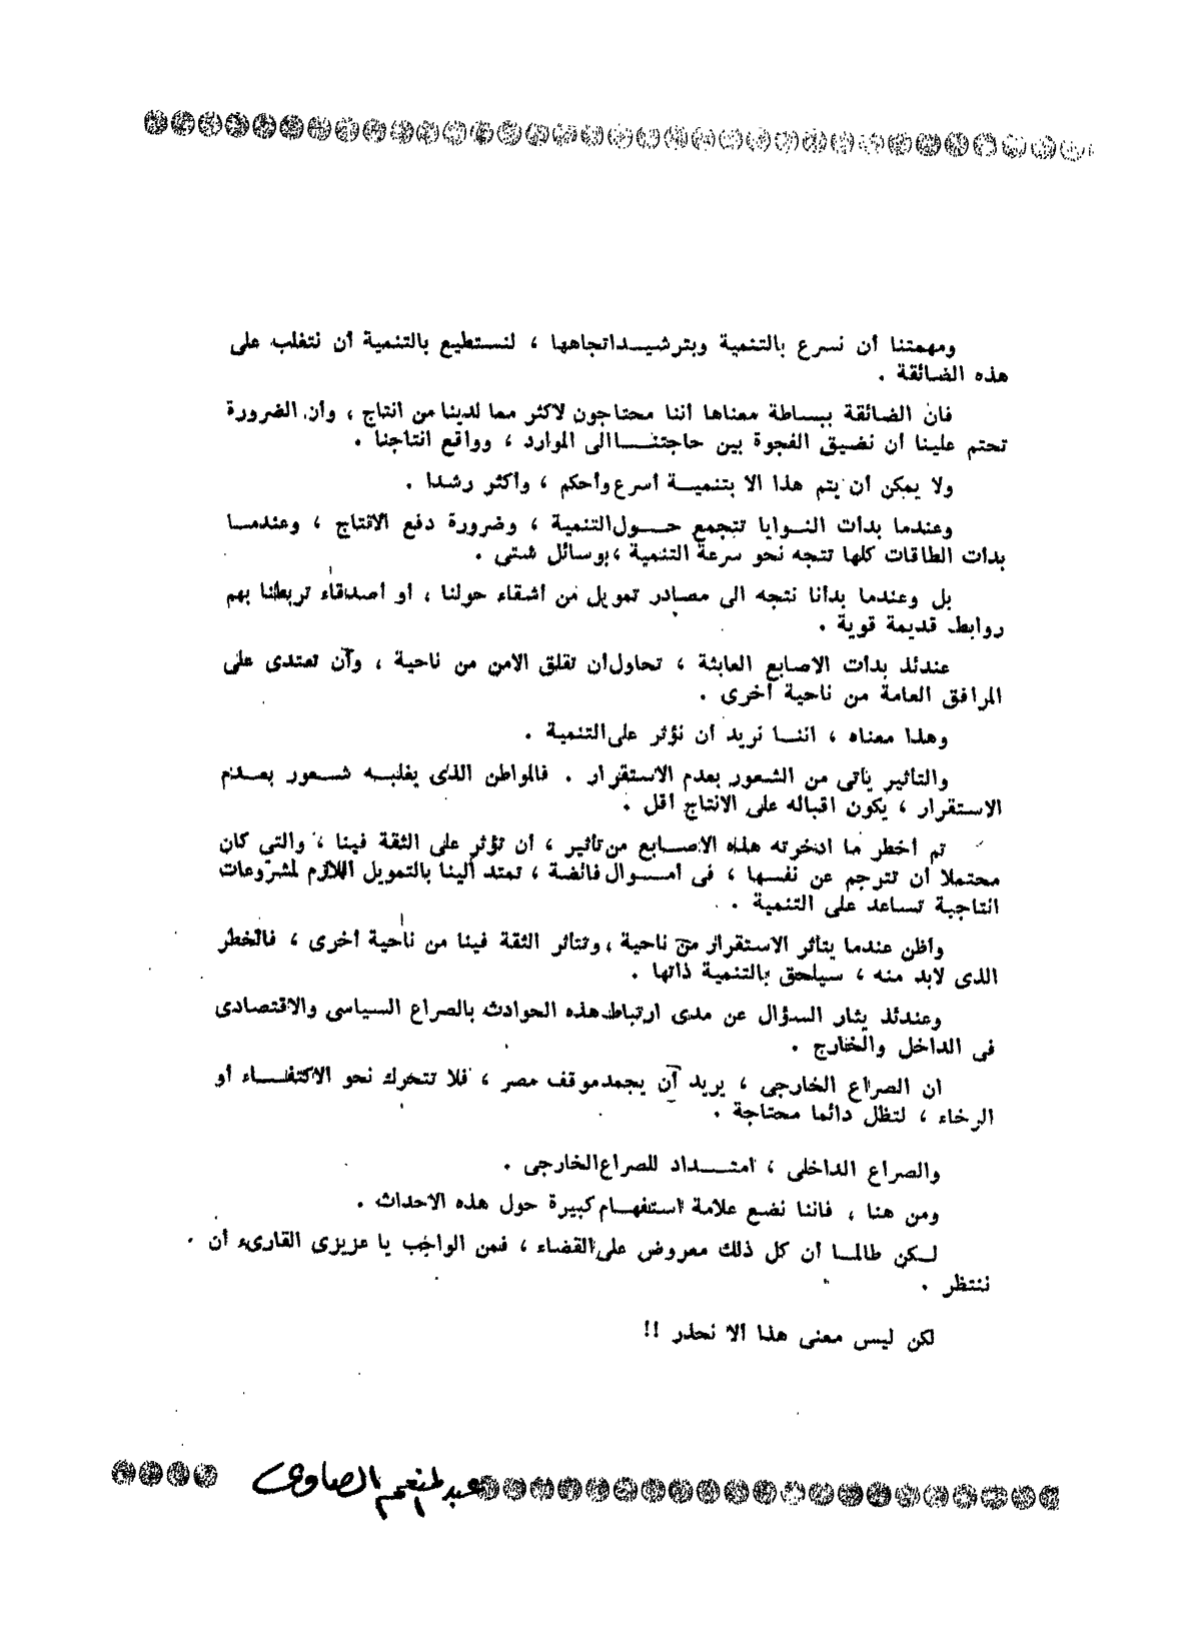 ومهمتنا أن نسرع بالتنمية وبترشيد اتجاهها ، لنستطيع بالتنمية أن نتغلب على
هذه الضائقة .
فان الضائقة ببساطة معناها أننا محتاجون لاكثر مما لدينا من انتاج ، وأن الضرورة
تحتم علينا أن نضيق الفجوة بين حاجتنا الى الموارد ، وواقع انتاجنا .
ولا يمكن أن يتم هذا الا بتنمية أسرع وأحكم ، وأكثر رشدا .
وعندما بدأت النوايا تتجمع حول التنمية ، وضرورة دفع الانتاج ، وعندما
بدأت الطاقات كلها تتجه نحو سرعة التنمية ، بوسائل شتى .
بل وعندما بدأنا نتجه الى مصادر تمويل من أشقاء حولنا ، أو أصدقاء تربطنا بهم
روابط قديمة قوية .
عندئذ بدأت الاصابع العابثة ، تحاول أن تقلق الامن من ناحية ، وأن تعتدى على
المرافق العامة من ناحية أخرى .
وهذا معناه ، اننا نريد أن نؤثر على التنمية .
والتأثير يأتى من الشعور بعدم الاستقرار . فالمواطن الذى يغلبه شعور بعدم
الاستقرار ، يكون اقباله على الانتاج أقل .
ثم أخطر ما ادخرته هذه الاصابع من تأثير ، أن تؤثر على الثقة فينا ، والتي كان
محتملا أن تترجم عن نفسها ، فى أموال فائضة ، تمتد الينا بالتمويل اللازم لمشروعات
انتاجية تساعد على التنمية .
وأظن عندما يتأثر الاستقرار من ناحية ، وتتأثر الثقة فينا من ناحية أخرى ، فالخطر
الذى لابد منه ، سيلحق بالتنمية ذاتها .
وعندئذ يثار السؤال عن مدى ارتباط هذه الحوادث بالصراع السياسى والاقتصادى
فى الداخل والخارج .
ان الصراع الخارجى ، يريد أن يجمد موقف مصر ، فلا تتحرك نحو الاكتفاء أو
الرخاء ، لتظل دائما محتاجة .
والصراع الداخلى ، امتداد للصراع الخارجى .
ومن هنا ، فاننا نضع علامة استفهام كبيرة حول هذه الاحداث .
لكن طالما أن كل ذلك معروض على القضاء ، فمن الواجب يا عزيزى القارىء أن
ننتظر .
لكن ليس معنى هذا ألا نحذر !!
عبد المنعم الصاوى